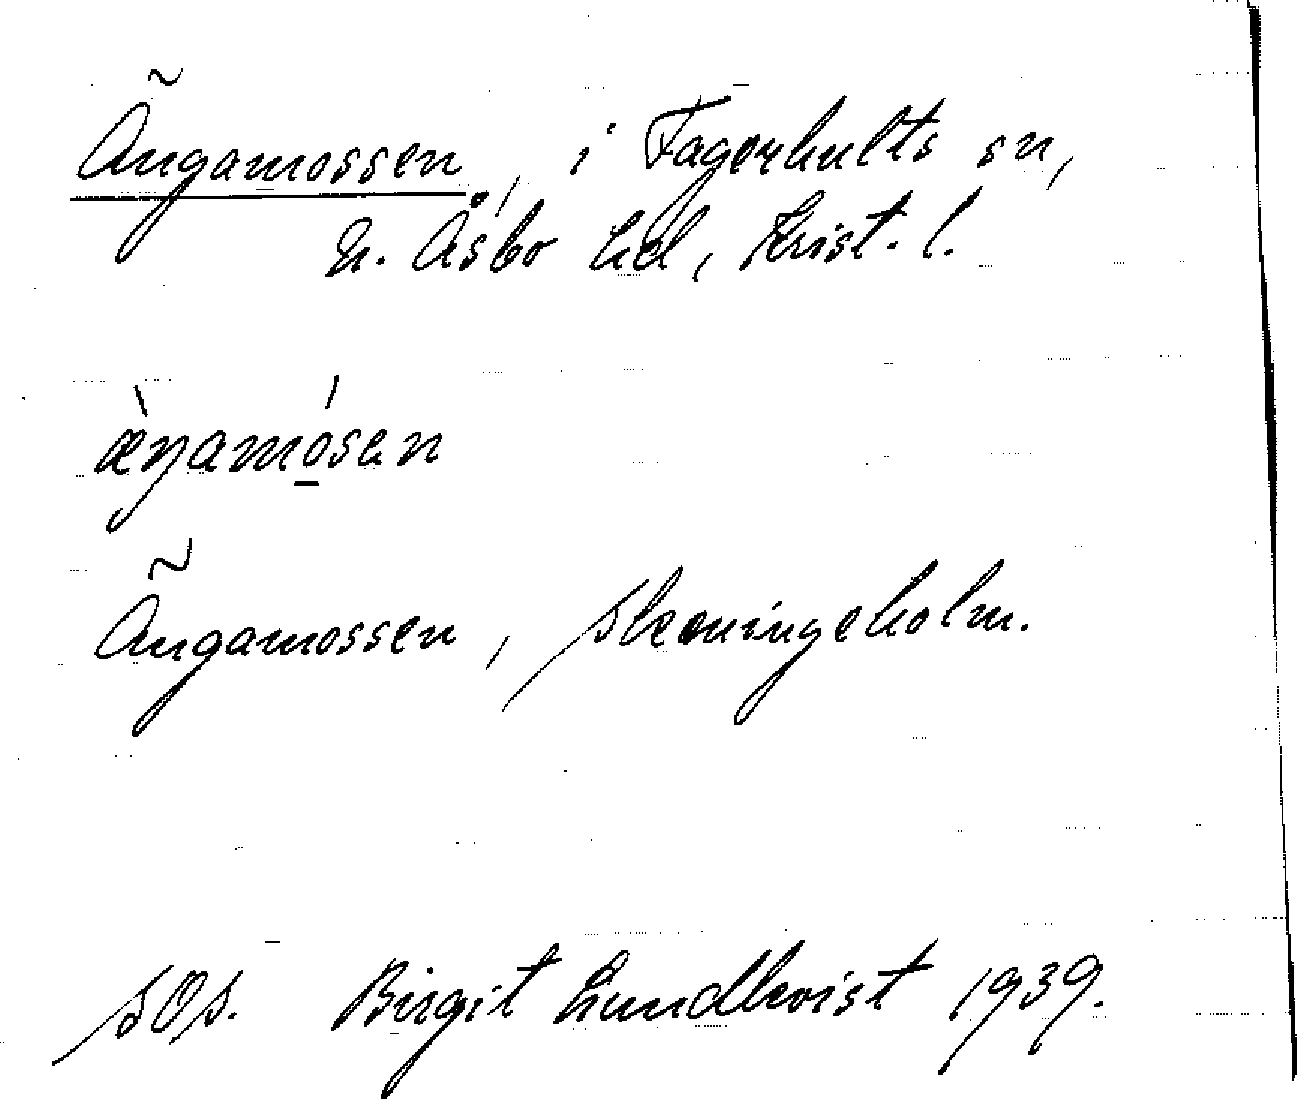 Ängamossen, i Fagerhults sn,
N. Åsbo hd, Krist. l.
æ̀ŋamósen
Ängamossen, Skäningeholm.
SOS. Birgit Lundkvist 1939.